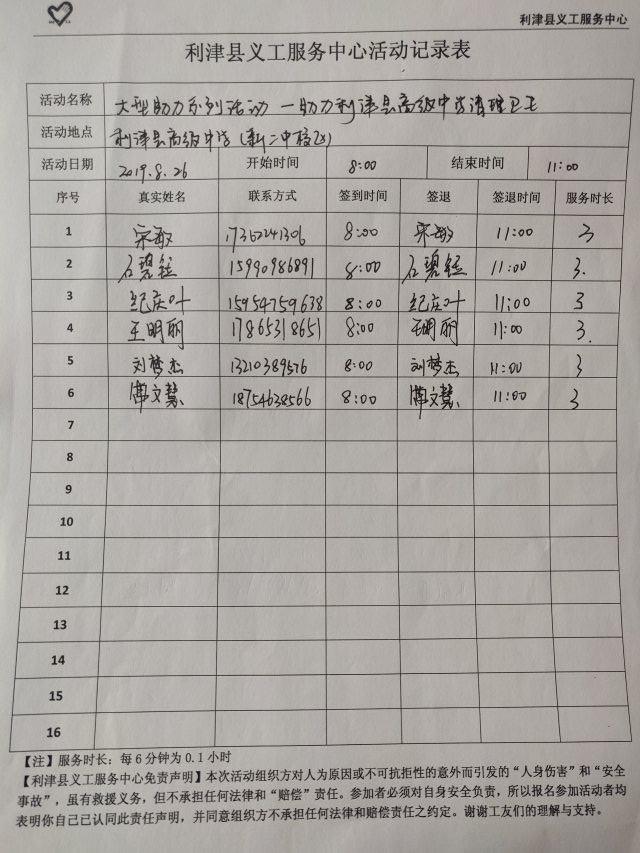 利津县义工服务中心
利津县义工服务中心活动记录表
活动名称 大型助力系列活动 一助力利津县高级中学清理卫生
活动地点 利津县高级中学(新二中校区)
活动日期 2019.8.26 开始时间 8:00 结束时间 11:00
序号 真实姓名 联系方式 签到时间 签退 签退时间 服务时长
1 宋敏 8:00 宋敏 11:00 3
2 石碧 15990986891 8:00 石碧 11:00 3.
3 纪庆叶 15954759638 8:00 纪庆叶 11:00 3
4 王明丽 17865318651 8:00 王明丽 11:00 3.
5 刘梦杰 13210389576 8:00 刘梦杰 11:00 3
6 文慧 18754638566 8:00 文慧 11:00 3
7
8
9
10
11
12
13
14
15
16
【注】服务时长：每6分钟为0.1小时
【利津县义工服务中心免责声明】本次活动组织方对人为原因或不可抗拒性的意外而引发的“人身伤害”和“安全
事故”，虽有救援义务，但不承担任何法律和“赔偿”责任。参加者必须对自身安全负责，所以报名参加活动者均
表明你自己已认同此责任声明，并同意组织方不承担任何法律和赔偿责任之约定。谢谢工友们的理解与支持。